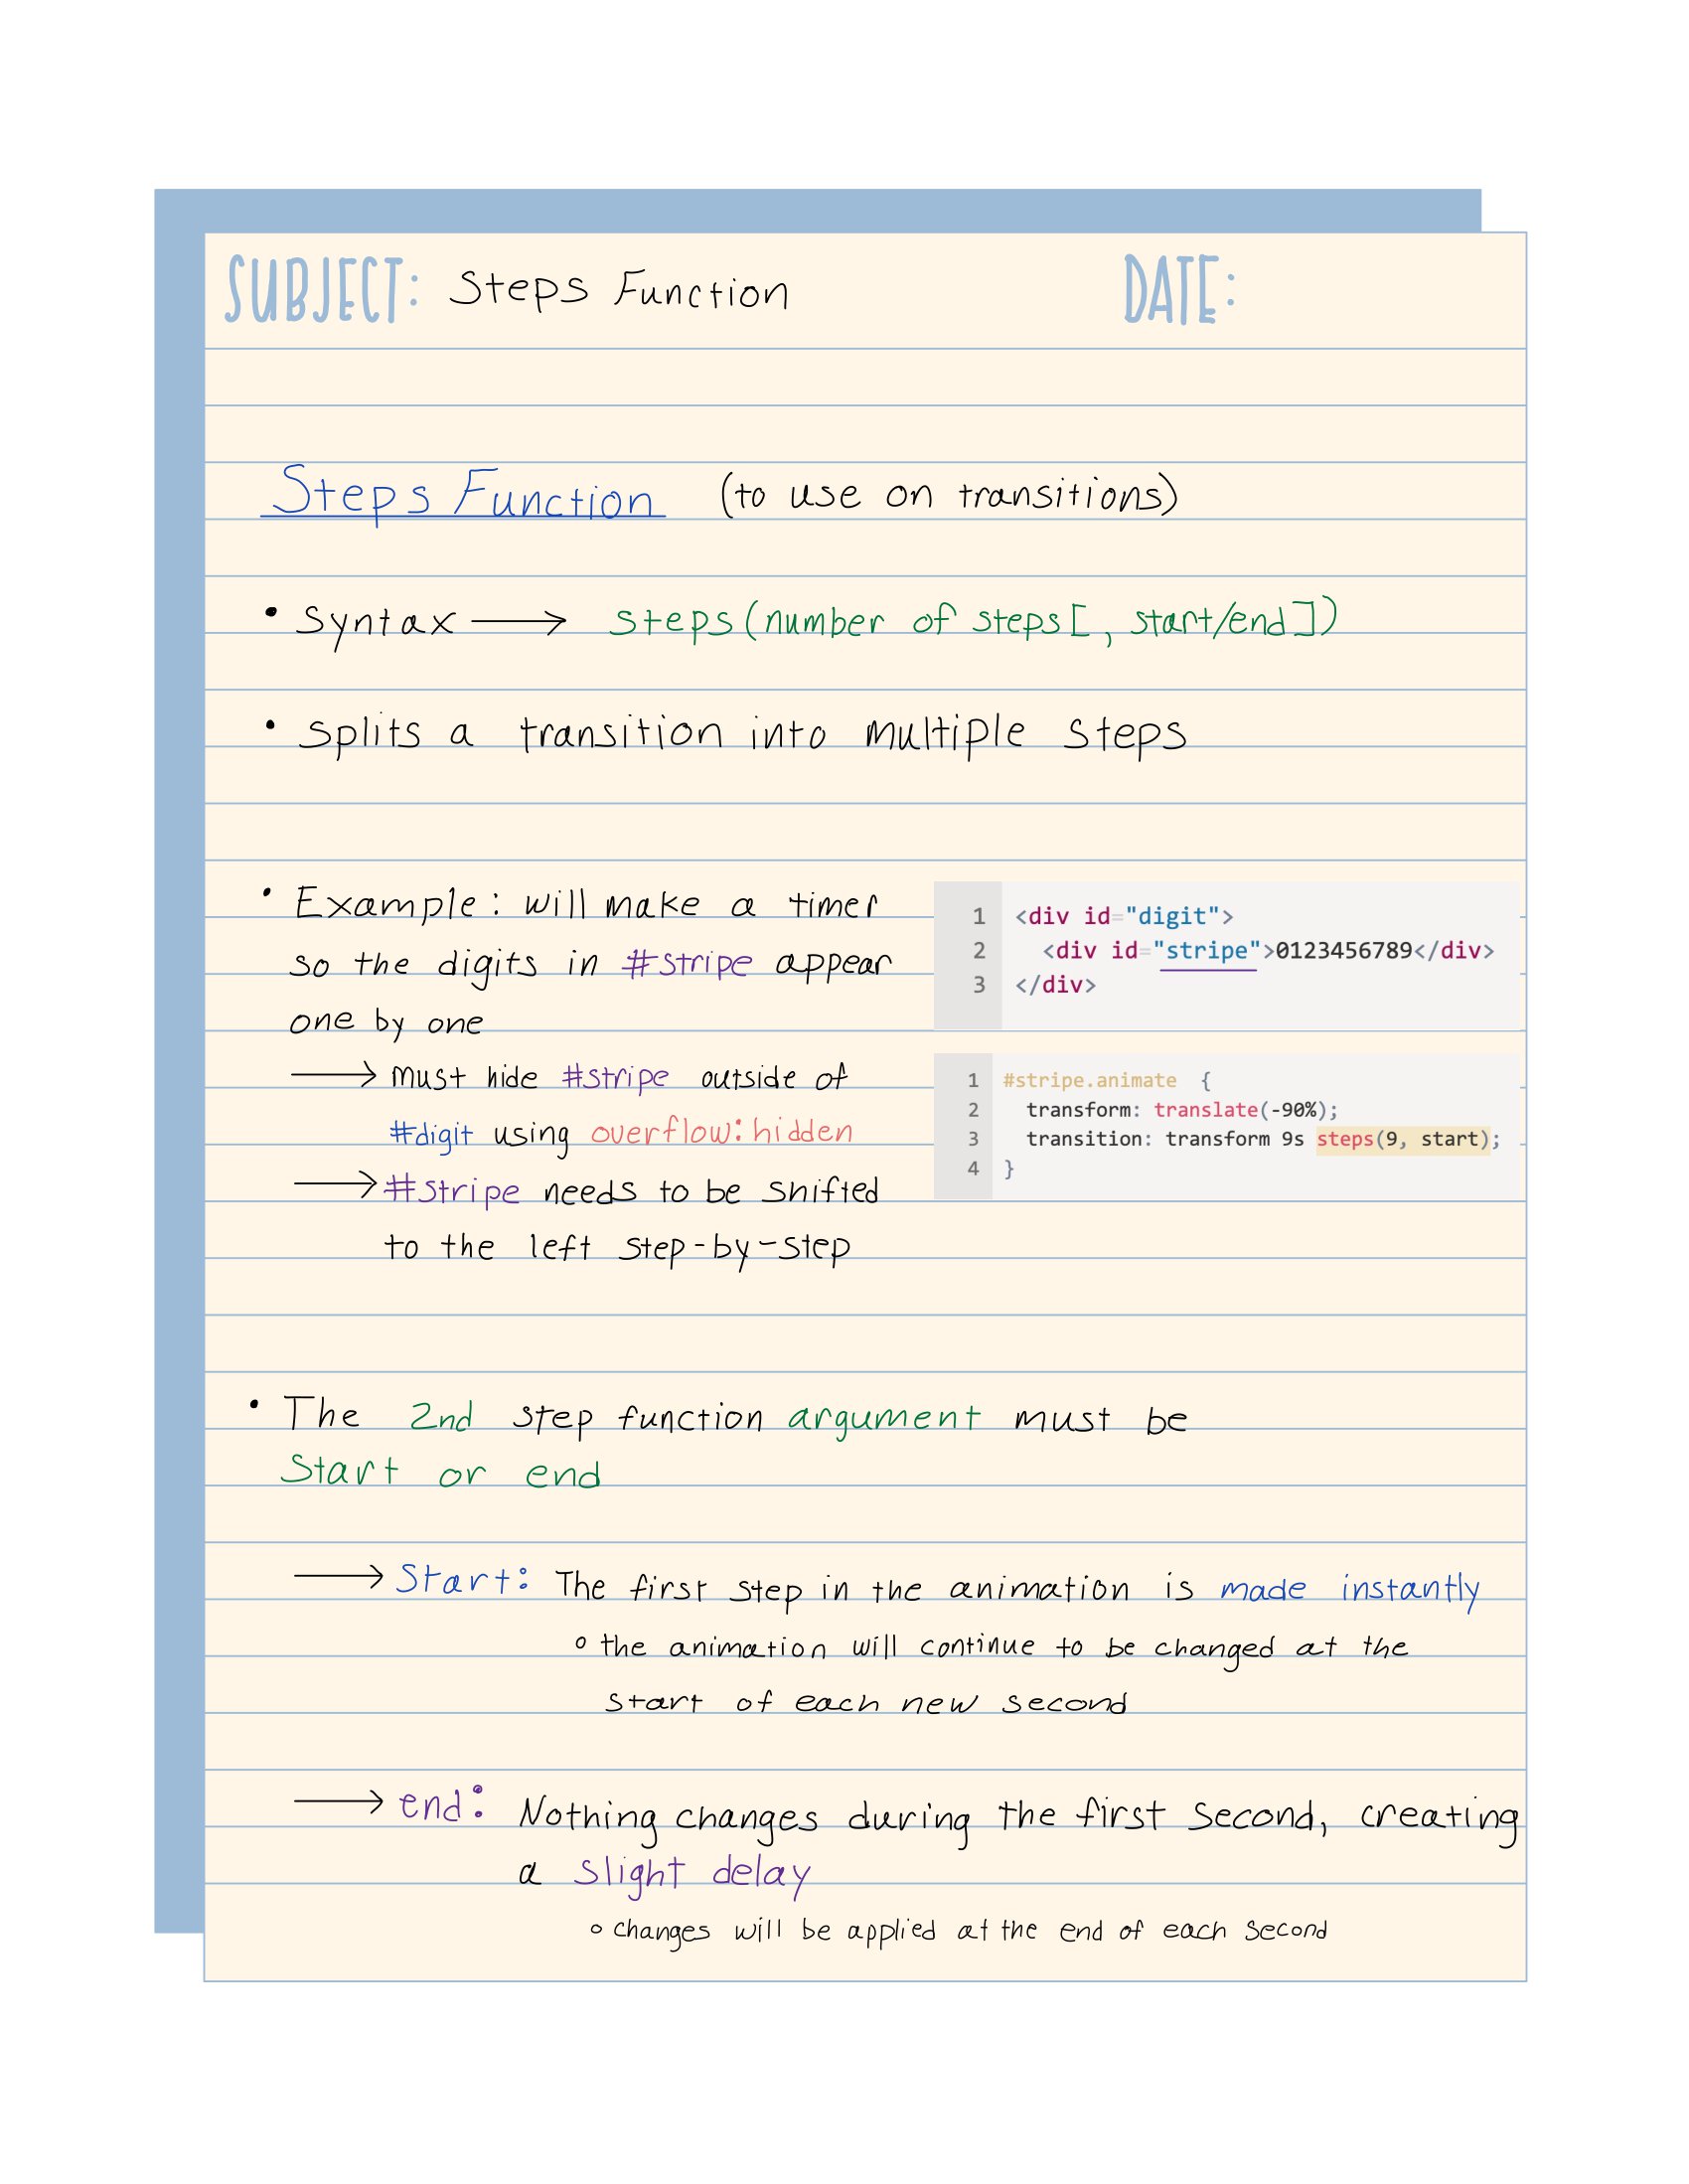 SUBJECT: Steps Function DATE:
Steps Function (to use on transitions)
• Syntax ⟶ steps(number of steps[, start/end])
• Splits a transition into multiple steps
• Example: will make a timer
so the digits in #stripe appear
one by one
⟶ must hide #stripe outside of
#digit using overflow:hidden
⟶ #stripe needs to be shifted
to the left step-by-step
1 <div id="digit">
2 <div id="stripe">0123456789</div>
3 </div>
1 #stripe.animate {
2 transform: translate(-90%);
3 transition: transform 9s steps(9, start);
4 }
• The 2nd step function argument must be
start or end
⟶ Start: The first step in the animation is made instantly
◦ the animation will continue to be changed at the
start of each new second
⟶ end: Nothing changes during the first second, creating
a slight delay
◦ changes will be applied at the end of each second